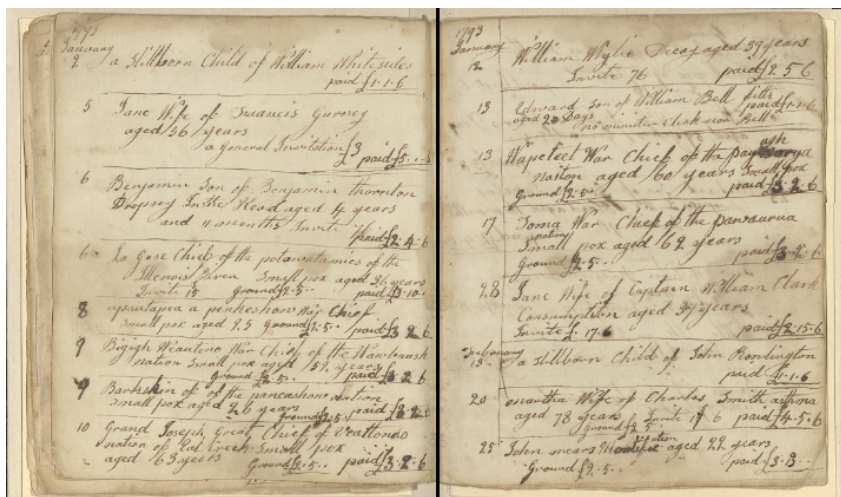 1793
January
2 a Stillborn Child of William Whitesides
paid £1·1·6
5 Jane Wife of Francis Gurney
aged 56 years
a general Invitation £3 paid £5·1·6
6 Benjamin Son of Benjamin thornton
Dropsey In the Head aged 4 years
and 4 months Invite paid £2·4·6
6 La Gose Chief of the potowatamies of the
Illenois River Small pox aged 36 years
Invite 15 Ground £2·5·· paid £3·10··
8 a penkeshow War Chief
Small pox aged 25 Ground £2·5·· paid £3·2·6
9 Bigigh Weautono War Chief of the Wawbaush
nation Small pox aged 57 years
Ground £2·5·· paid £3·2·6
9 Barkskin of of the pancashaw nation
Small pox aged 26 years
Ground £2·5·· paid £3·2·6
10 Grand Joseph Great Chief of Veattonas
nation of Eal Creek Small pox
aged 63 years Ground £2·5·· paid £3·2·6
1793
January
12 William Wylie Decay aged 39 years
Invite 76 paid £2·5·6
13 Edward Son of William Bell fitts
aged 20 Days paid £1·1·6
no minister Clark nor Bell
13 Wapeteet War Chief of the
nation aged 60 years Small pox
Ground £2·5·· paid £3·2·6
17 Toma War Chief of the
nation
Small pox aged 62 years
Ground £2·5·· paid £3·2·6
28 Jane Wife of Captain William Clark
Consumption aged 37 years
Invite £·17·6 paid £2·15·6
February
13 a Stillborn Child of John Ronlington
paid £1·1·6
20 martha Wife of Charles Smith asthma
aged 78 years Invite 17 6 paid £4·5·6
Ground £2 5
25 John mears aged 22 years
Ground £2·5·· paid £3·3··